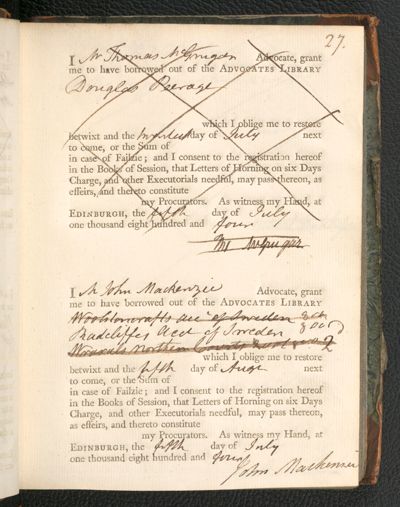 27.
I Mr Thomas McGrugar Advocate, grant
me to have borrowed out of the ADVOCATES LIBRARY
Douglas Peerage
which I oblige me to restore
betwixt and the day of July next
to come, or the Sum of
in case of Failzie; and I consent to the registration hereof
in the Books of Session, that Letters of Horning on six Days
Charge, and other Executorials needful, may pass thereon, as
effeirs, and thereto constitute
my Procurators. As witness my Hand, at
EDINBURGH, the fifth day of July
one thousand eight hundred and four
I Mr John Mackenzie Advocate, grant
me to have borrowed out of the ADVOCATES LIBRARY
Woolstoncrafts acc of Sweden
Radcliffes Acct of Sweden
Wraxals Northern Courts 2
which I oblige me to restore
betwixt and the fifth day of Augt next
to come, or the Sum of
in case of Failzie; and I consent to the registration hereof
in the Books of Session, that Letters of Horning on six Days
Charge, and other Executorials needful, may pass thereon,
as effeirs, and thereto constitute
my Procurators. As witness my Hand, at
EDINBURGH, the fifth day of July
one thousand eight hundred and four
John Mackenzie